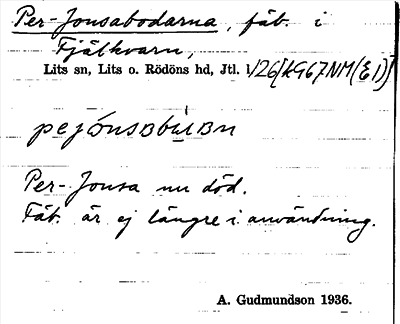 Per-Jonsabodarna, fäb. i
Fjälkvarn,
Lits sn, Lits o. Rödöns hd, Jtl. 1/26[AG67NM(E1)]
Per-Jonsa nu död.
Fäb. är ej längre i användning.
A. Gudmundson 1936.